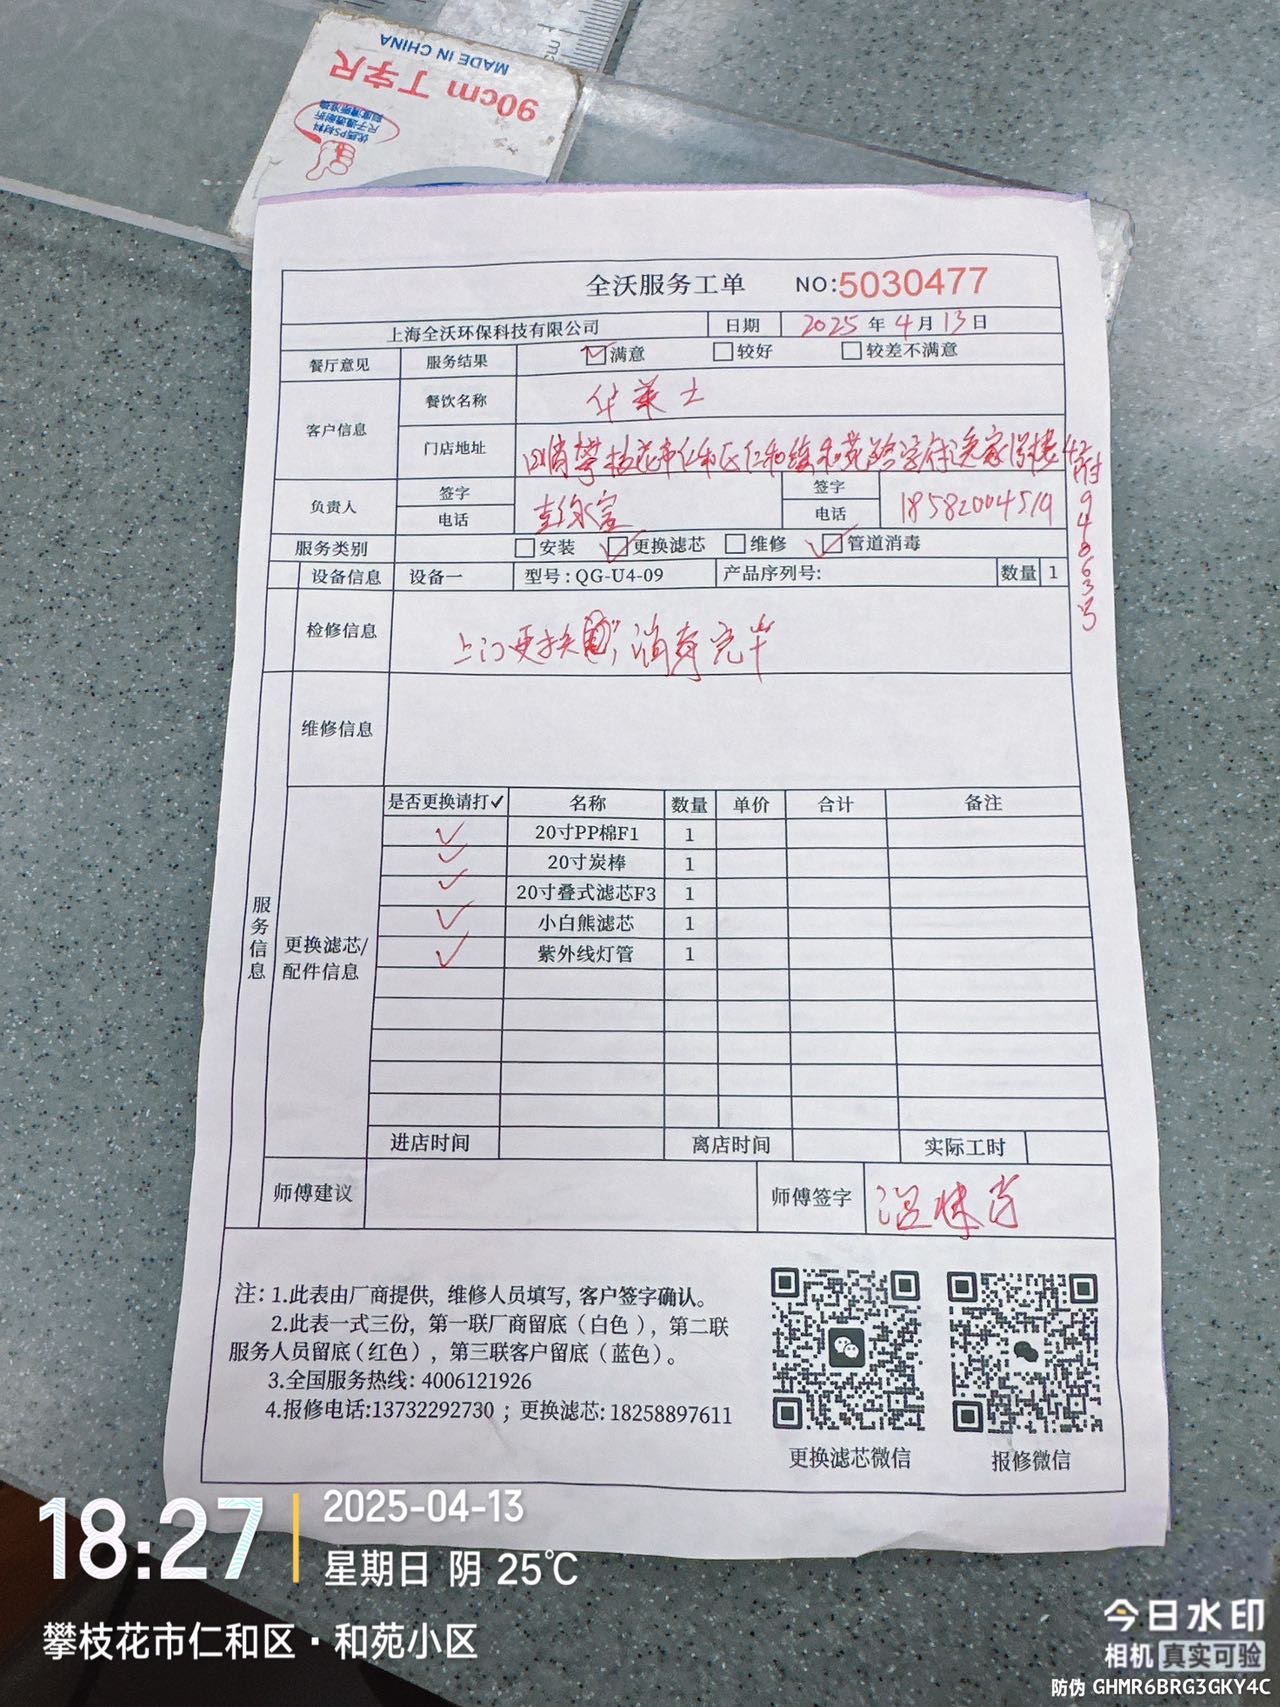 MADE IN CHINA
90cm 丁字尺
优质PS材料
全沃服务工单 NO:5030477
上海全沃环保科技有限公司 日期 2025 年 4 月 13 日
餐厅意见 服务结果 满意 较好 较差不满意
客户信息 餐饮名称 华莱士
门店地址 四川省攀枝花市仁和区仁和
负责人 签字 签字
电话 电话 18582004519
服务类别 安装 更换滤芯 维修 管道消毒
设备信息 设备一 型号：QG-U4-09 产品序列号： 数量 1
检修信息 上门更换 消毒完毕
维修信息
服务信息
更换滤芯/配件信息
是否更换请打✓ 名称 数量 单价 合计 备注
✓ 20寸PP棉F1 1
✓ 20寸炭棒 1
✓ 20寸叠式滤芯F3 1
✓ 小白熊滤芯 1
✓ 紫外线灯管 1
进店时间 离店时间 实际工时
师傅建议 师傅签字
注：1.此表由厂商提供，维修人员填写，客户签字确认。
2.此表一式三份，第一联厂商留底（白色），第二联
服务人员留底（红色），第三联客户留底（蓝色）。
3.全国服务热线：4006121926
4.报修电话:13732292730；更换滤芯: 18258897611
更换滤芯微信 报修微信
18:27
2025-04-13
星期日 阴 25℃
攀枝花市仁和区·和苑小区
今日水印
相机 真实可验
防伪 GHMR6BRG3GKY4C